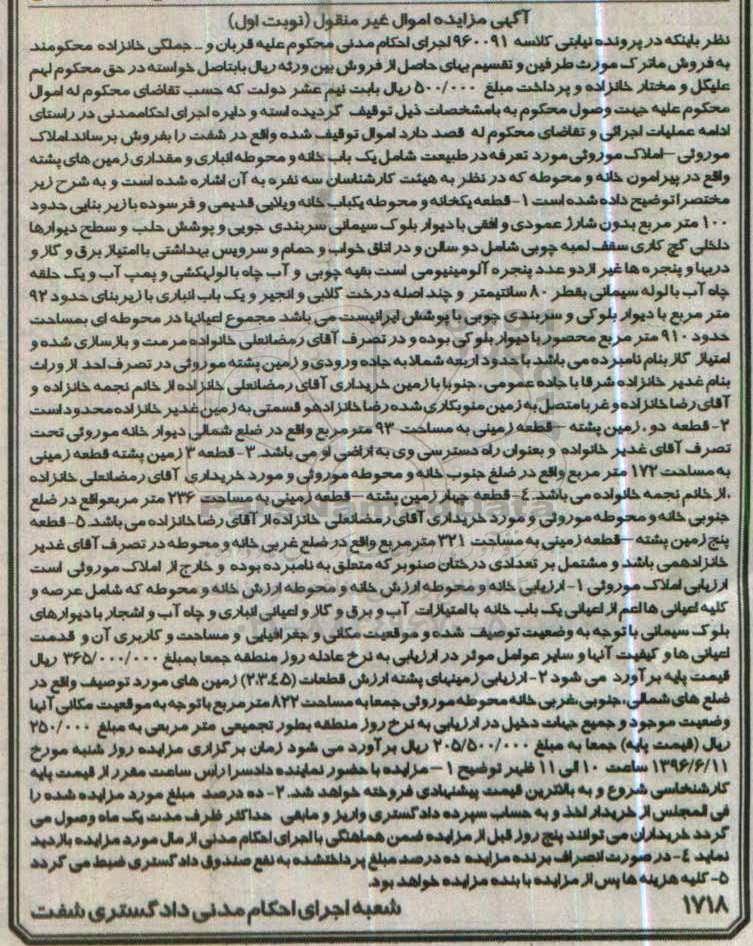 آگهی مزایده اموال غیر منقول (نوبت اول)
نظر باینکه در پرونده نیابتی کلاسه ۹۶۰۰۹۱ اجرای احکام مدنی محکوم علیه قربان و ... جملکی خانزاده محکومند
به فروش ماترک مورث طرفین و تقسیم بهای حاصل از فروش بین ورثه ریال بابتاصل خواسته در حق محکوم لهم
علیگل و مختار خانزاده و پرداخت مبلغ ۵۰۰/۰۰۰ ریال بابت نیم عشر دولت که حسب تقاضای محکوم له اموال
محکوم علیه جهت وصول محکوم به بامشخصات ذیل توقیف گردیده است و دایره اجرای احکاممدنی در راستای
ادامه عملیات اجرائی و تقاضای محکوم له قصد دارد اموال توقیف شده واقع در شفت را بفروش برساند.املاک
موروثی –املاک موروثی مورد تعرفه در طبیعت شامل یک باب خانه و محوطه انباری و مقداری زمین های پشته
واقع در پیرامون خانه و محوطه که در نظر به هیئت کارشناسان سه نفره به آن اشاره شده است و به شرح زیر
مختصرا توضیح داده شده است ۱- قطعه یکخانه و محوطه یکباب خانه ویلایی قدیمی و فرسوده با زیر بنایی حدود
۱۰۰ متر مربع بدون شارژ عمودی و افقی با دیوار بلوک سیمانی سربندی چوبی و پوشش حلب و سطح دیوارها
داخلی گچ کاری سقف لمبه چوبی شامل دو سالن و در اتاق خواب و حمام و سرویس بهداشتی با امتیاز برق و گاز و
دربها و پنجره ها غیر از دو عدد پنجره آلومینیومی است بقیه چوبی و آب چاه با لولهکشی و پمپ آب و یک حلقه
چاه آب با لوله سیمانی بقطر ۸۰ سانتیمتر و چند اصله درخت گلابی و انجیر و یک باب انباری با زیر بنای حدود ۹۲
متر مربع با دیوار بلوکی و سربندی چوبی با پوشش ایرانیست می باشد مجموع اعیانها در محوطه ای بمساحت
حدود ۹۱۰ متر مربع محصور با دیوار بلوکی بوده و در تصرف آقای رمضانعلی خانواده مرمت و بازسازی شده و
امتیاز گاز بنام نامبرده می باشد با حدود اربعه شمالا به جاده ورودی و زمین پشته موروثی در تصرف احد از وراث
بنام غدیر خانزاده شرقا با جاده عمومی، جنوبا با زمین خریداری آقای رمضانعلی خانزاده از خانم نجمه خانزاده و
آقای رضا خانزاده و غربا متصل به زمین صنوبکاری شده رضا خانزادهو قسمتی به زمین غدیر خانزاده محدود است
۲- قطعه دو، زمین پشته – قطعه زمینی به مساحت ۹۳ متر مربع واقع در ضلع شمالی دیوار خانه موروثی تحت
تصرف آقای غدیر خانواده و بعنوان راه دسترسی وی به اراضی او می باشد. ۳- قطعه ۳ زمین پشته قطعه زمینی
به مساحت ۱۷۲ متر مربع واقع در ضلع جنوب خانه و محوطه موروثی و مورد خریداری آقای رمضانعلی خانزاده
،از خانم نجمه خانواده می باشد. ٤- قطعه چهار زمین پشته – قطعه زمینی به مساحت ۲۳۶ متر مربعواقع در ضلع
جنوبی خانه و محوطه موروثی و مورد خریداری آقای رمضانعلی خانزاده از آقای رضا خانزاده می باشد. ۵- قطعه
پنج زمین پشته – قطعه زمینی به مساحت ۳۲۱ متر مربع واقع در ضلع غربی خانه و محوطه در تصرف آقای غدیر
خانزادهمی باشد و مشتمل بر تعدادی درختان صنوبر که متعلق به نامبرده بوده و خارج از املاک موروثی است
ارزیابی املاک موروثی ۱- ارزیابی خانه و محوطه ارزش خانه و محوطه ارزش خانه و محوطه که شامل عرصه و
کلیه اعیانی ها اعم از اعیانی یک باب خانه با امتیازات آب و برق و گاز و اعیانی انباری و چاه آب و اشجار با دیوارهای
بلوک سیمانی با توجه به وضعیت توصیف شده و موقعیت مکانی و جغرافیایی و مساحت و کاربری آن و قدمت
اعیانی ها و کیفیت آنها و سایر عوامل موثر در ارزیابی به نرخ عادله روز منطقه جمعا بمبلغ ۳۶۵/۰۰۰/۰۰۰ ریال
قیمت پایه برآورد می شود ۲- ارزیابی زمینهای پشته ارزش قطعات (۲،۳،٤،۵) زمین های مورد توصیف واقع در
ضلع های شمالی، جنوبی غربی خانه محوطه موروثی جمعا به مساحت ۸۲۲ متر مربع با توجه به موقعیت مکانی آنها
وضعیت موجود و جمیع جهات دخیل در ارزیابی به نرخ روز منطقه بطور تجمیعی متر مربعی به مبلغ ۲۵۰/۰۰۰
ریال (قیمت پایه) جمعا به مبلغ ۲۰۵/۵۰۰/۰۰۰ ریال برآورد می شود زمان برگزاری مزایده روز شنبه مورخ
۱۳۹۶/۶/۱۱ ساعت ۱۰ الی ۱۱ ظهر توضیح ۱- مزایده با حضور نماینده دادسرا راس ساعت مقرر از قیمت پایه
کارشناسی شروع و به بالاترین قیمت پیشنهادی فروخته خواهد شد. ۲- ده درصد مبلغ مورد مزایده شده را
فی المجلس از خریدار اخذ و به حساب سپرده دادگستری واریز و مابقی حداکثر ظرف مدت یک ماه وصول می
گردد خریداران می توانند پنج روز قبل از مزایده ضمن هماهنگی با اجرای احکام مدنی از مال مورد مزایده بازدید
نماید ٤- در صورت انصراف برنده مزایده ده درصد مبلغ پرداختشده به نفع صندوق دادگستری ضبط می گردد
۵- کلیه هزینه ها پس از مزایده با بنده مزایده خواهد بود.
۱۷۱۸ شعبه اجرای احکام مدنی دادگستری شفت